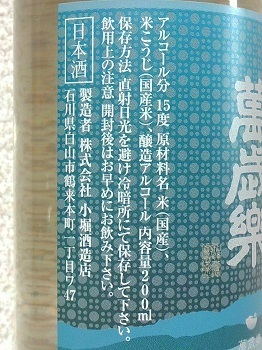 萬歳樂
アルコール分 15度 原材料名 米(国産)、
米こうじ(国産米)、醸造アルコール 内容量200ml
保存方法 直射日光を避け冷暗所にて保存して下さい。
飲用上の注意 開封後はお早めにお飲み下さい。
日本酒
製造者 株式会社 小堀酒造店
石川県白山市鶴来本町一丁目ワ47